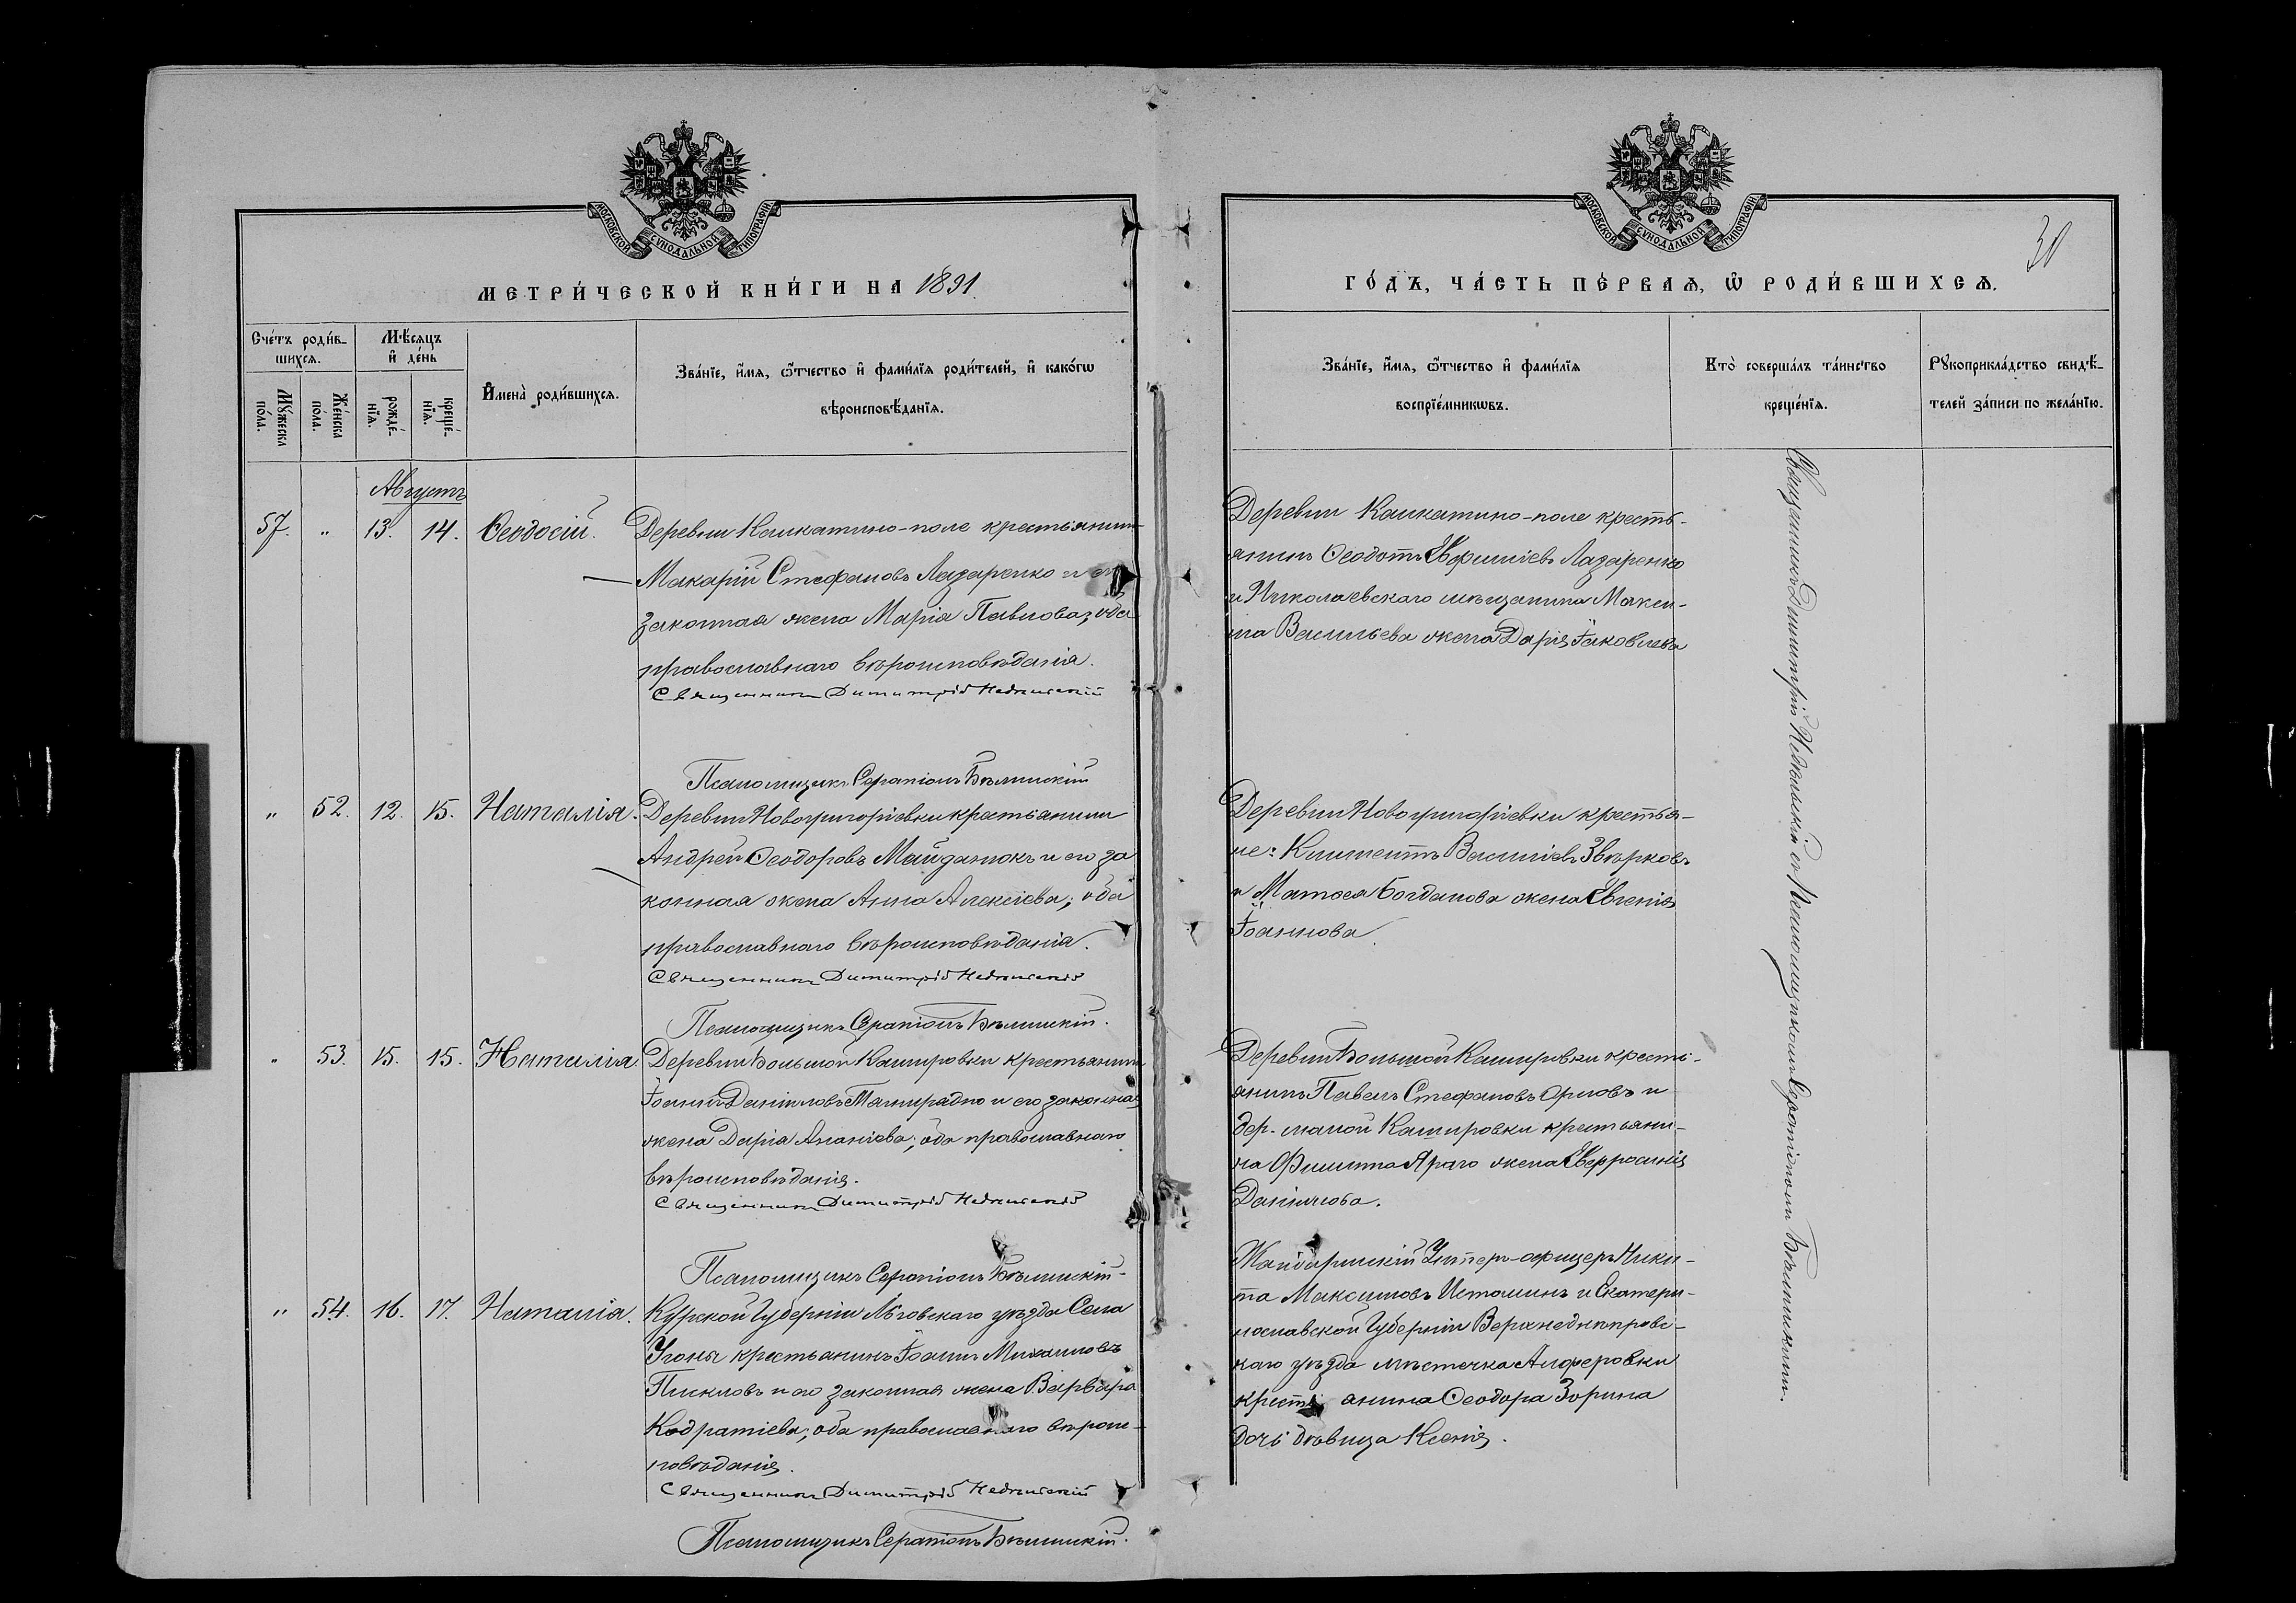 МОСКОВСКОЙ СѴНОДАЛЬНОЙ ТИПОГРАФІИ
МЕТРИ́ЧЕСКОЙ КНИ́ГИ НА 1891.
Сче́тъ роди́в-
шихсѧ.
Мѣ́сяцъ
и҆ де́нь
Мꙋ́жеска
по́ла.
Же́нска
по́ла.
рожде́-
нїѧ.
креще́-
нїѧ.
И҆мена̀ роди́вшихсѧ.
Зва́нїе, и҆́мѧ, ѻ҆́тчество и҆ фами́лїѧ роди́телей, и҆ како́гѡ
вѣроисповѣ́данїѧ.
Августъ
57. " 13. 14. Ѳеодосій.
Деревни Кашкатино-поле крестьянинъ
Макарій Стефановъ Лазаренко и
законная жена Марія Павлова; оба
православнаго вѣроисповѣданія.
Священникъ Димитрій
Псаломщикъ Серапіонъ Бѣлинскій
" 52. 12. 15. Наталія.
Деревни Новогригоріевки крестьянинъ
Андрей Ѳеодоровъ Майданюкъ и его за
конная жена Анна Алексіева; оба
православнаго вѣроисповѣданія.
Священникъ Димитрій
Псаломщикъ Серапіонъ Бѣлинскій.
" 53. 15. 15. Наталія.
Деревни Большой Кашировки крестьянинъ
Іоаннъ Даніиловъ и его законная
жена Дарія Ананіева; оба православнаго
вѣроисповѣданія.
Священникъ Димитрій
Псаломщикъ Серапіонъ Бѣлинскій
" 54. 16. 17. Наталія.
Курской Губерніи Льговскаго уѣзда Села
Угоны крестьянинъ Іоаннъ Михаиловъ
и его законная жена Варвара
Кодратіева; оба православнаго вѣроис-
повѣданія.
Священникъ Димитрій
Псаломщикъ Серапіонъ Бѣлинскій.
МОСКОВСКОЙ СѴНОДАЛЬНОЙ ТИПОГРАФІИ
30
ГО́ДЪ, ЧА́СТЬ ПЕ́РВАѦ, Ѡ҆ РОДИ́ВШИХСѦ.
Зва́нїе, и҆́мѧ, ѻ҆́тчество и҆ фами́лїѧ
воспрїе́мникѡвъ.
Кто̀ соверша́лъ та́инство
креще́нїѧ.
Рꙋкоприкла́дство свидѣ́-
телей за́писи по жела́нїю.
Деревни Кашкатино-поле кресть-
янинъ Ѳеодотъ Евфиміевъ Лазаренко
и Николаевскаго мѣщанина Макси-
ма Васильева жена Дарія Іаковлева
Деревни Новогригоріевки крестья-
не: Климентъ Василіевъ Звѣрковъ
и Матѳея Богданова жена Евгенія
Іоаннова.
Деревни Большой Кашировки кресть-
янинъ Павелъ Стефановъ Орловъ и
дер. малой Кашировки крестьяни-
на Филиппа Яраго жена Евфросинія
Даніилова.
Жандармскій Унтеръ-офицеръ Ники-
та Максимовъ Истоминъ и Екатери-
нославской Губерніи Верхнеднѣпровс-
каго уѣзда мѣстечка Алферовки
крестьянина Ѳеодора Зорина
дочь дѣвица Ксенія.
Священникъ Димитрій съ Псаломщикомъ Серапіономъ Бѣлинскимъ.